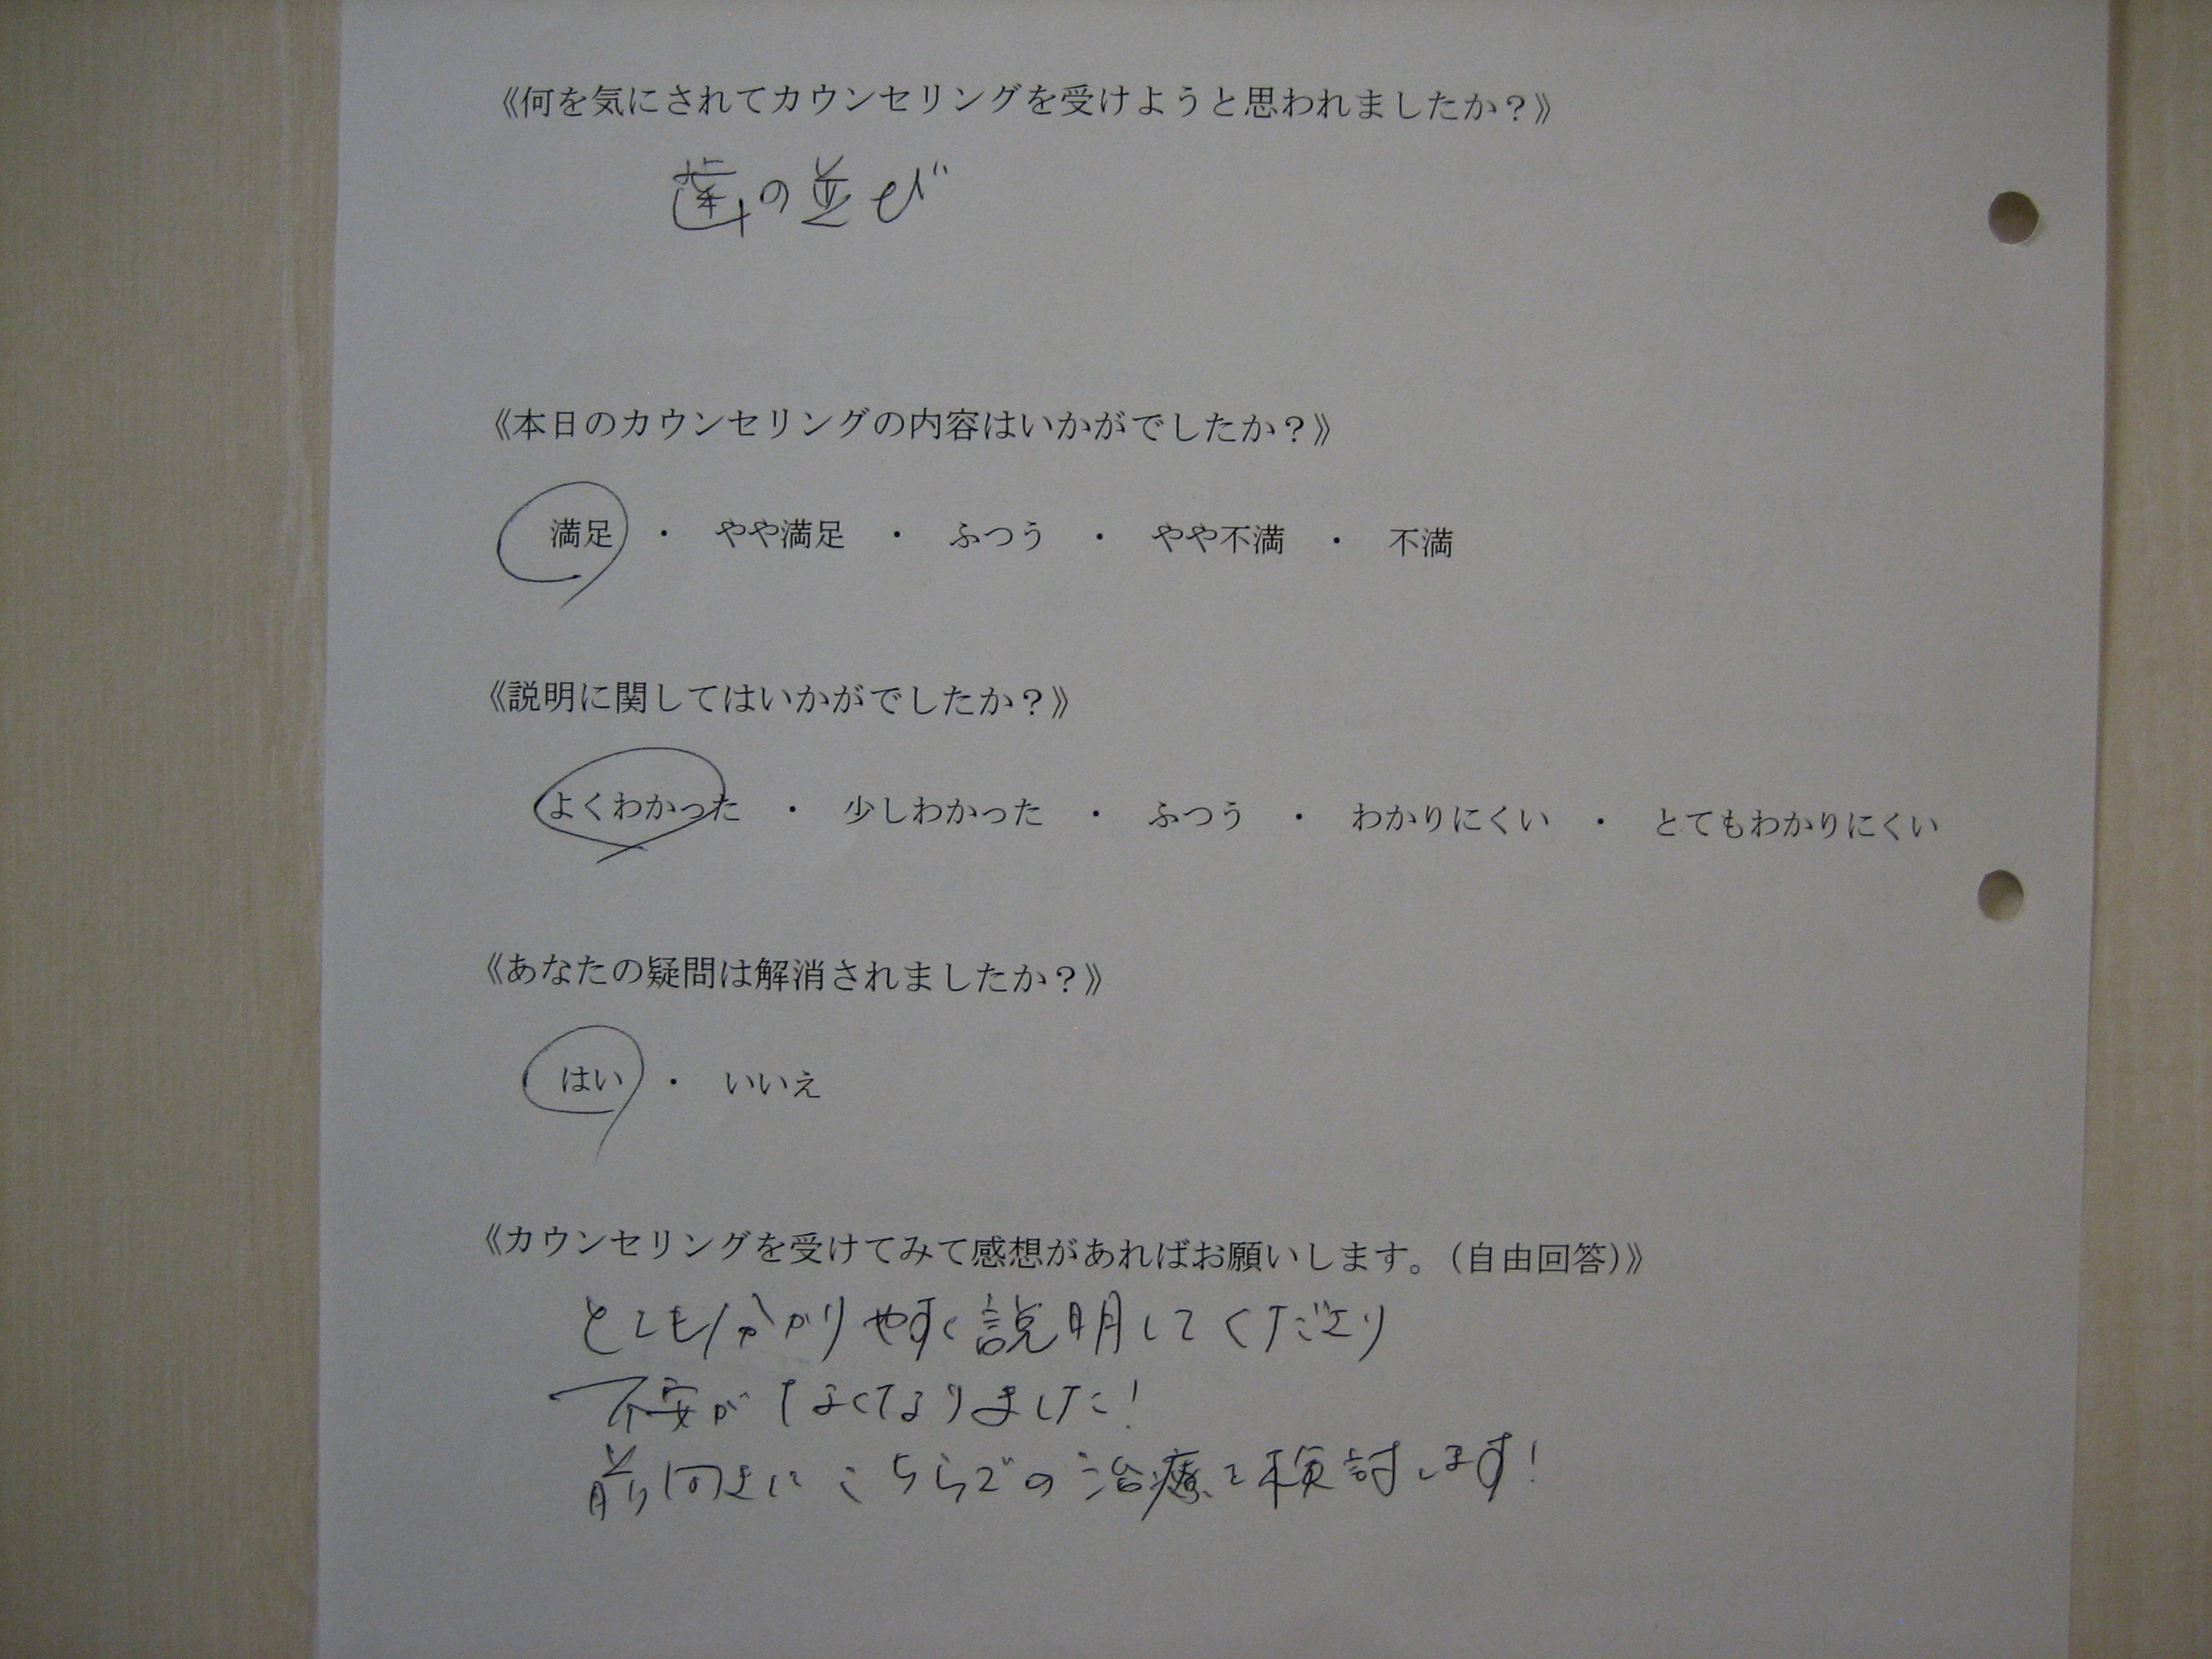 《何を気にされてカウンセリングを受けようと思われましたか？》
歯の並び
《本日のカウンセリングの内容はいかがでしたか？》
満足 ・ やや満足 ・ ふつう ・ やや不満 ・ 不満
《説明に関してはいかがでしたか？》
よくわかった ・ 少しわかった ・ ふつう ・ わかりにくい ・ とてもわかりにくい
《あなたの疑問は解消されましたか？》
はい ・ いいえ
《カウンセリングを受けてみて感想があればお願いします。（自由回答）》
とても分かりやすく説明してくださり
不安がなくなりました！
前向きにこちらでの治療を検討します！